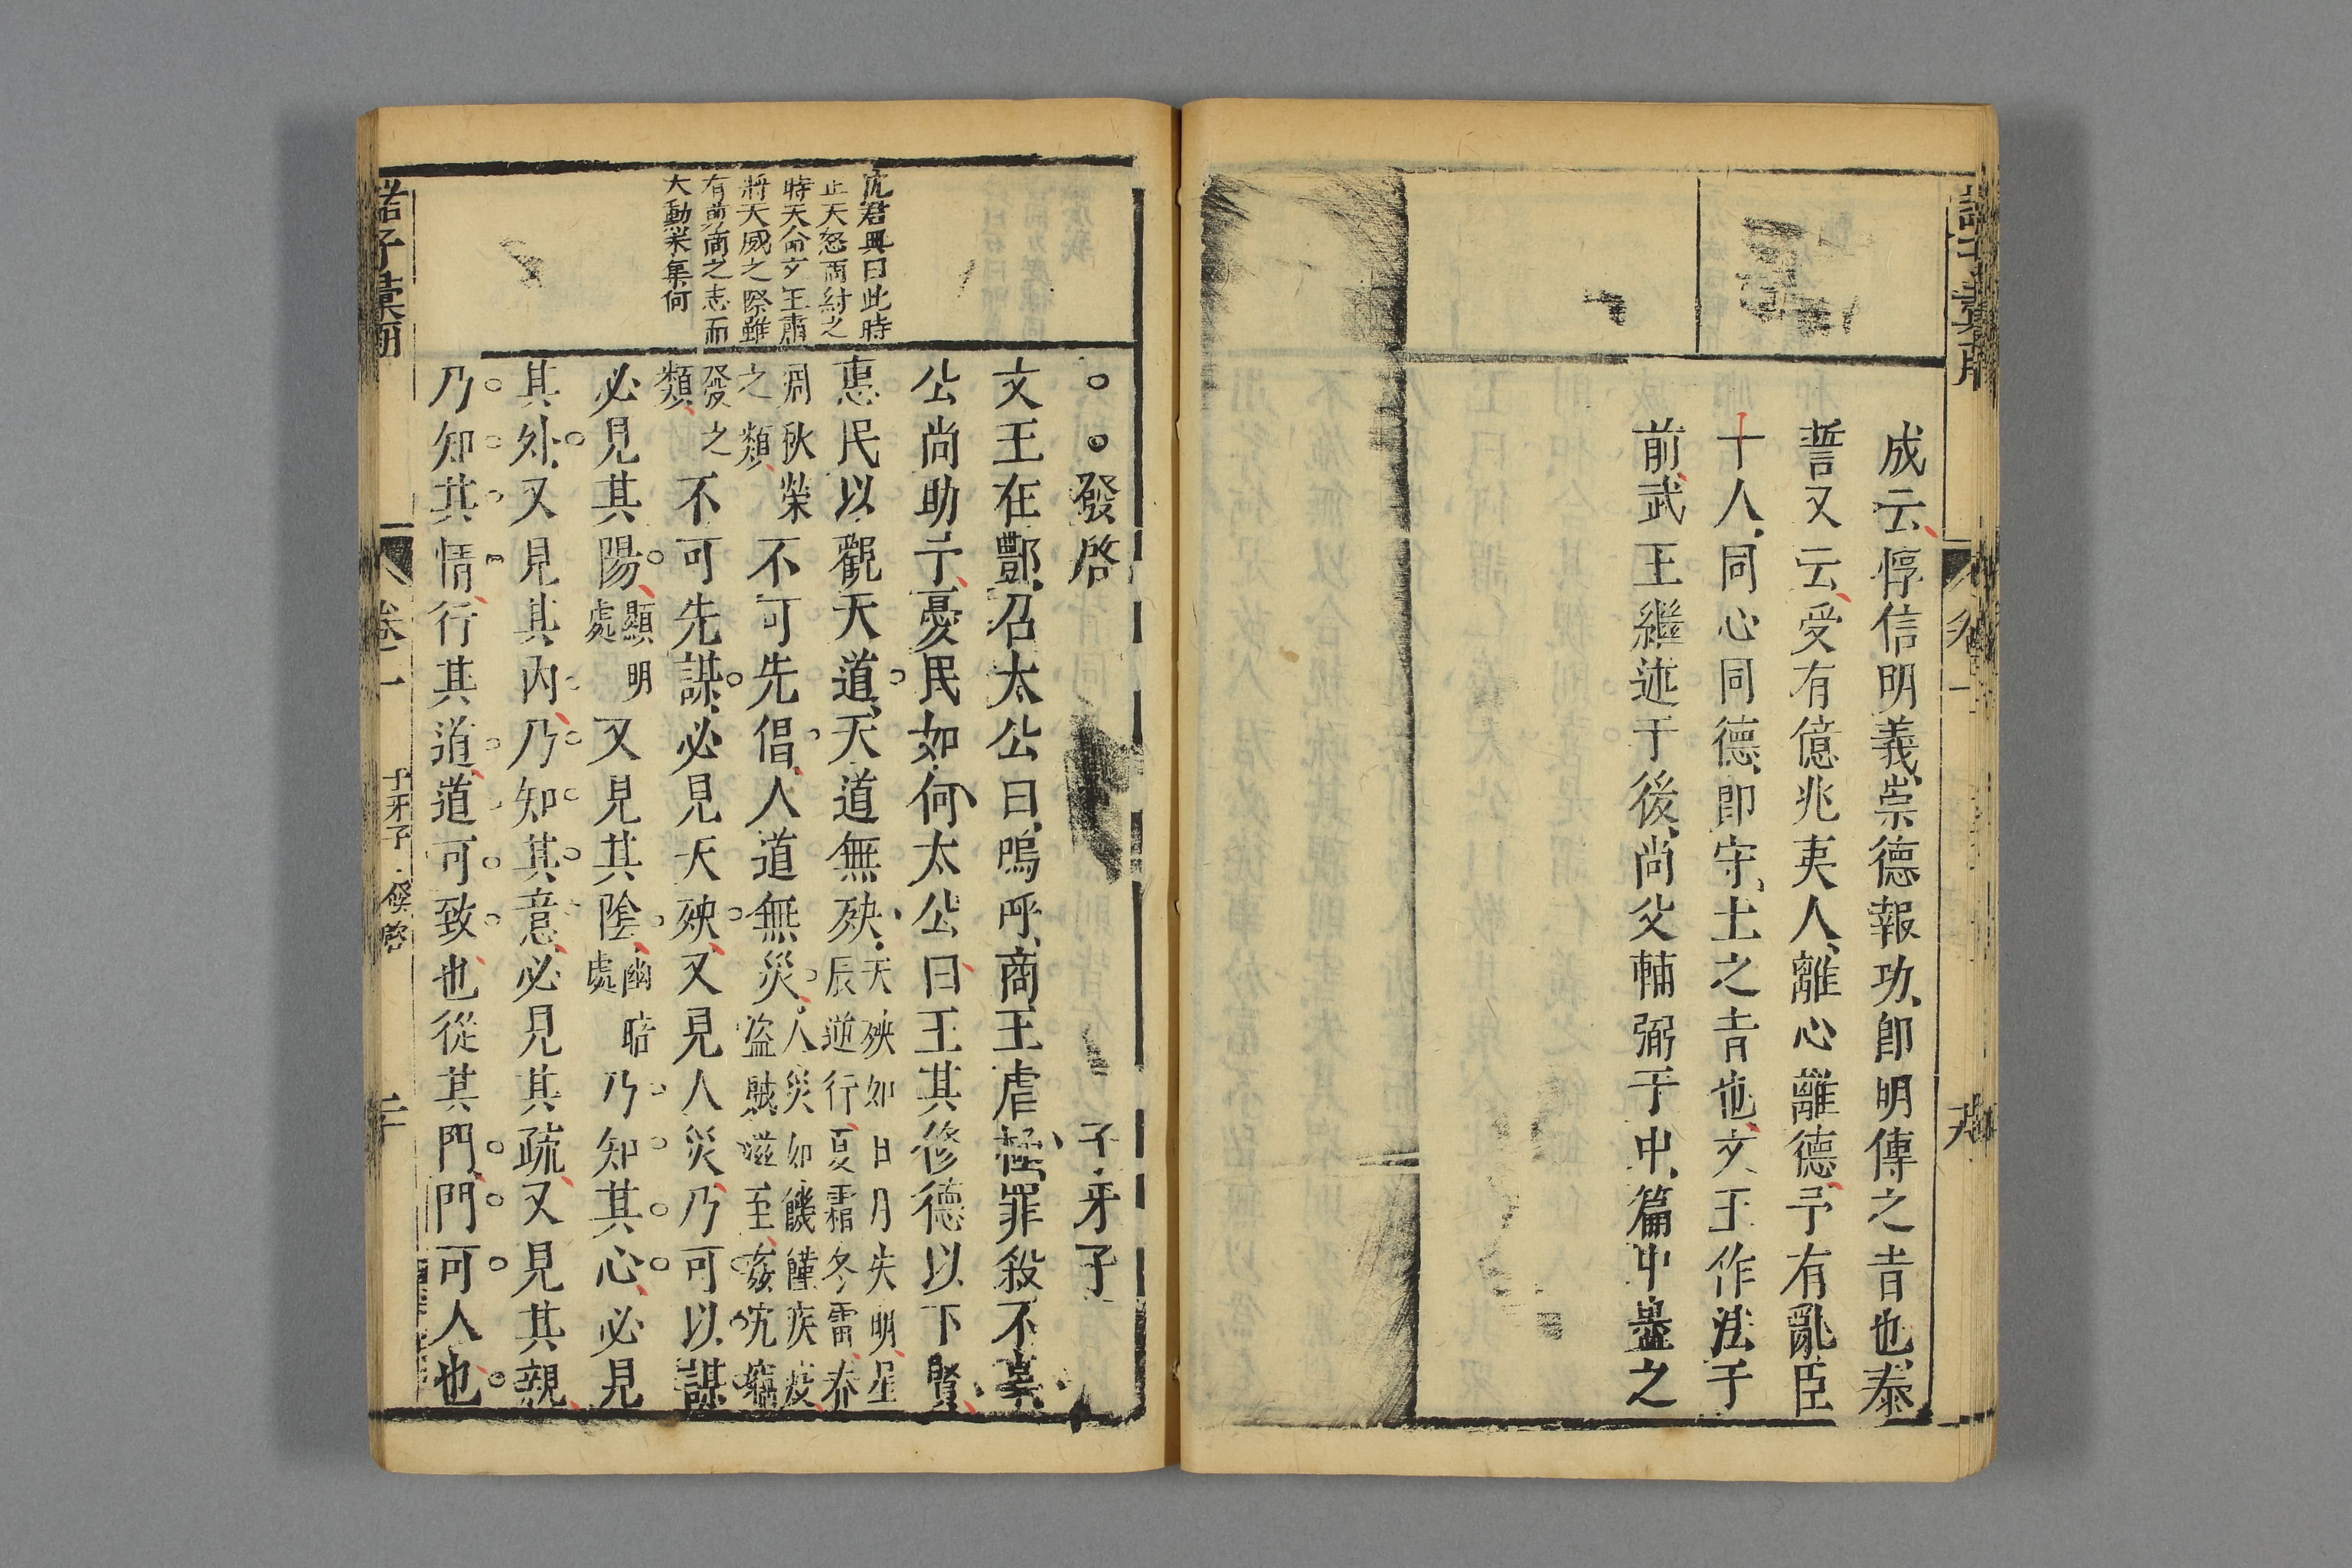 成云惇信明義崇德報功卽明傳之㫖也泰
誓又云受有億兆夷人離心離德予有亂臣
十人同心同德卽守土之㫖也文王作法于
前武王繼述于後尚父輔弼于中篇中盡之
發啓 子牙子
文王在酆召太公曰嗚呼商王虐極罪殺不辜
公尚助予憂民如何太公曰王其修德以下賢
惠民以觀天道天道無殃天殃如日月失明星
辰逆行夏霜冬雷春
凋秋榮
之類不可先倡人道無災人災如饑饉疾疫
盗賊滋至姦宄竊
發之
類不可先謀必見天殃又見人災乃可以謀
必見其陽顯明
處又見其陰幽暗
處乃知其心必見
其外又見其内乃知其意必見其疏又見其親
乃知其情行其道道可致也從其門門可人也
沈君興曰此時
正天怒商紂之
時天命文王肅
將天威之際雖
有剪商之志而
大勳未集何
卷一
子牙子
發啓